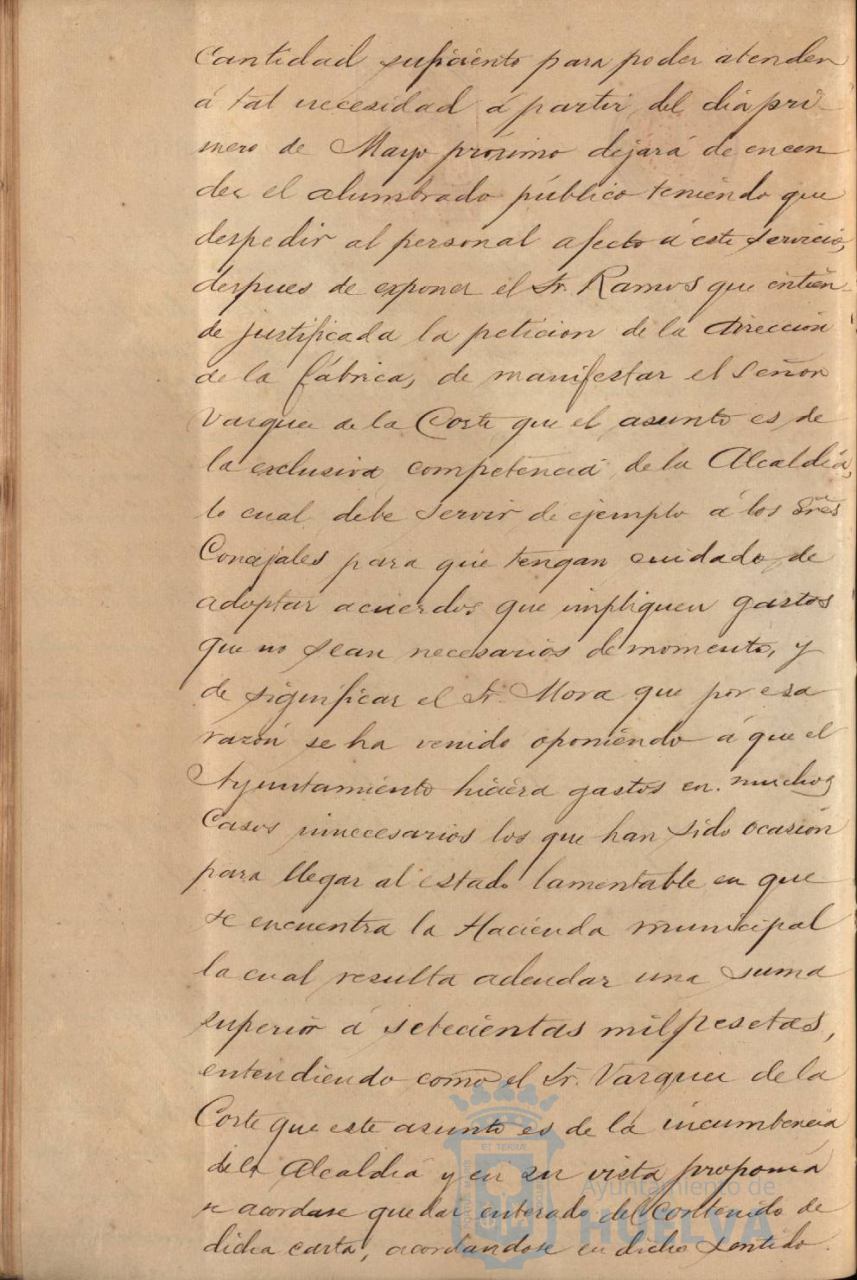 cantidad suficiente para poder atender
á tal necesidad á partir del dia pri-
mero de Mayo próximo dejará de encen
der el alumbrado público teniendo que
despedir al personal afecto á este servicio,
despues de exponer el Sr. Ramos que entien-
de justificada la peticion de la Dirección
de la fábrica, de manifestar el Señor
Vazquez de la Corte que el asunto es de
la exclusiva competencia de la Alcaldía,
lo cual debe servir de ejemplo á los Sres
Concejales para que tengan cuidado de
adoptar acuerdos que impliquen gastos
que no sean necesarios de momento, y
de significar el Sr. Mora que por esa
razón se ha venido oponiendo á que el
Ayuntamiento hiciera gastos en muchos
casos innecesarios los que han sido ocasión
para llegar al estado lamentable en que
se encuentra la Hacienda municipal
la cual resulta adeudar una suma
superior á setecientas mil pesetas,
entendiendo como el Sr. Vazquez de la
Corte que este asunto es de la incumbencia
de la Alcaldía y en su vista proponia
se acordase quedar enterado del contenido de
dicha carta, acordandose en dicho sentido.
Ayuntamiento de
HUELVA